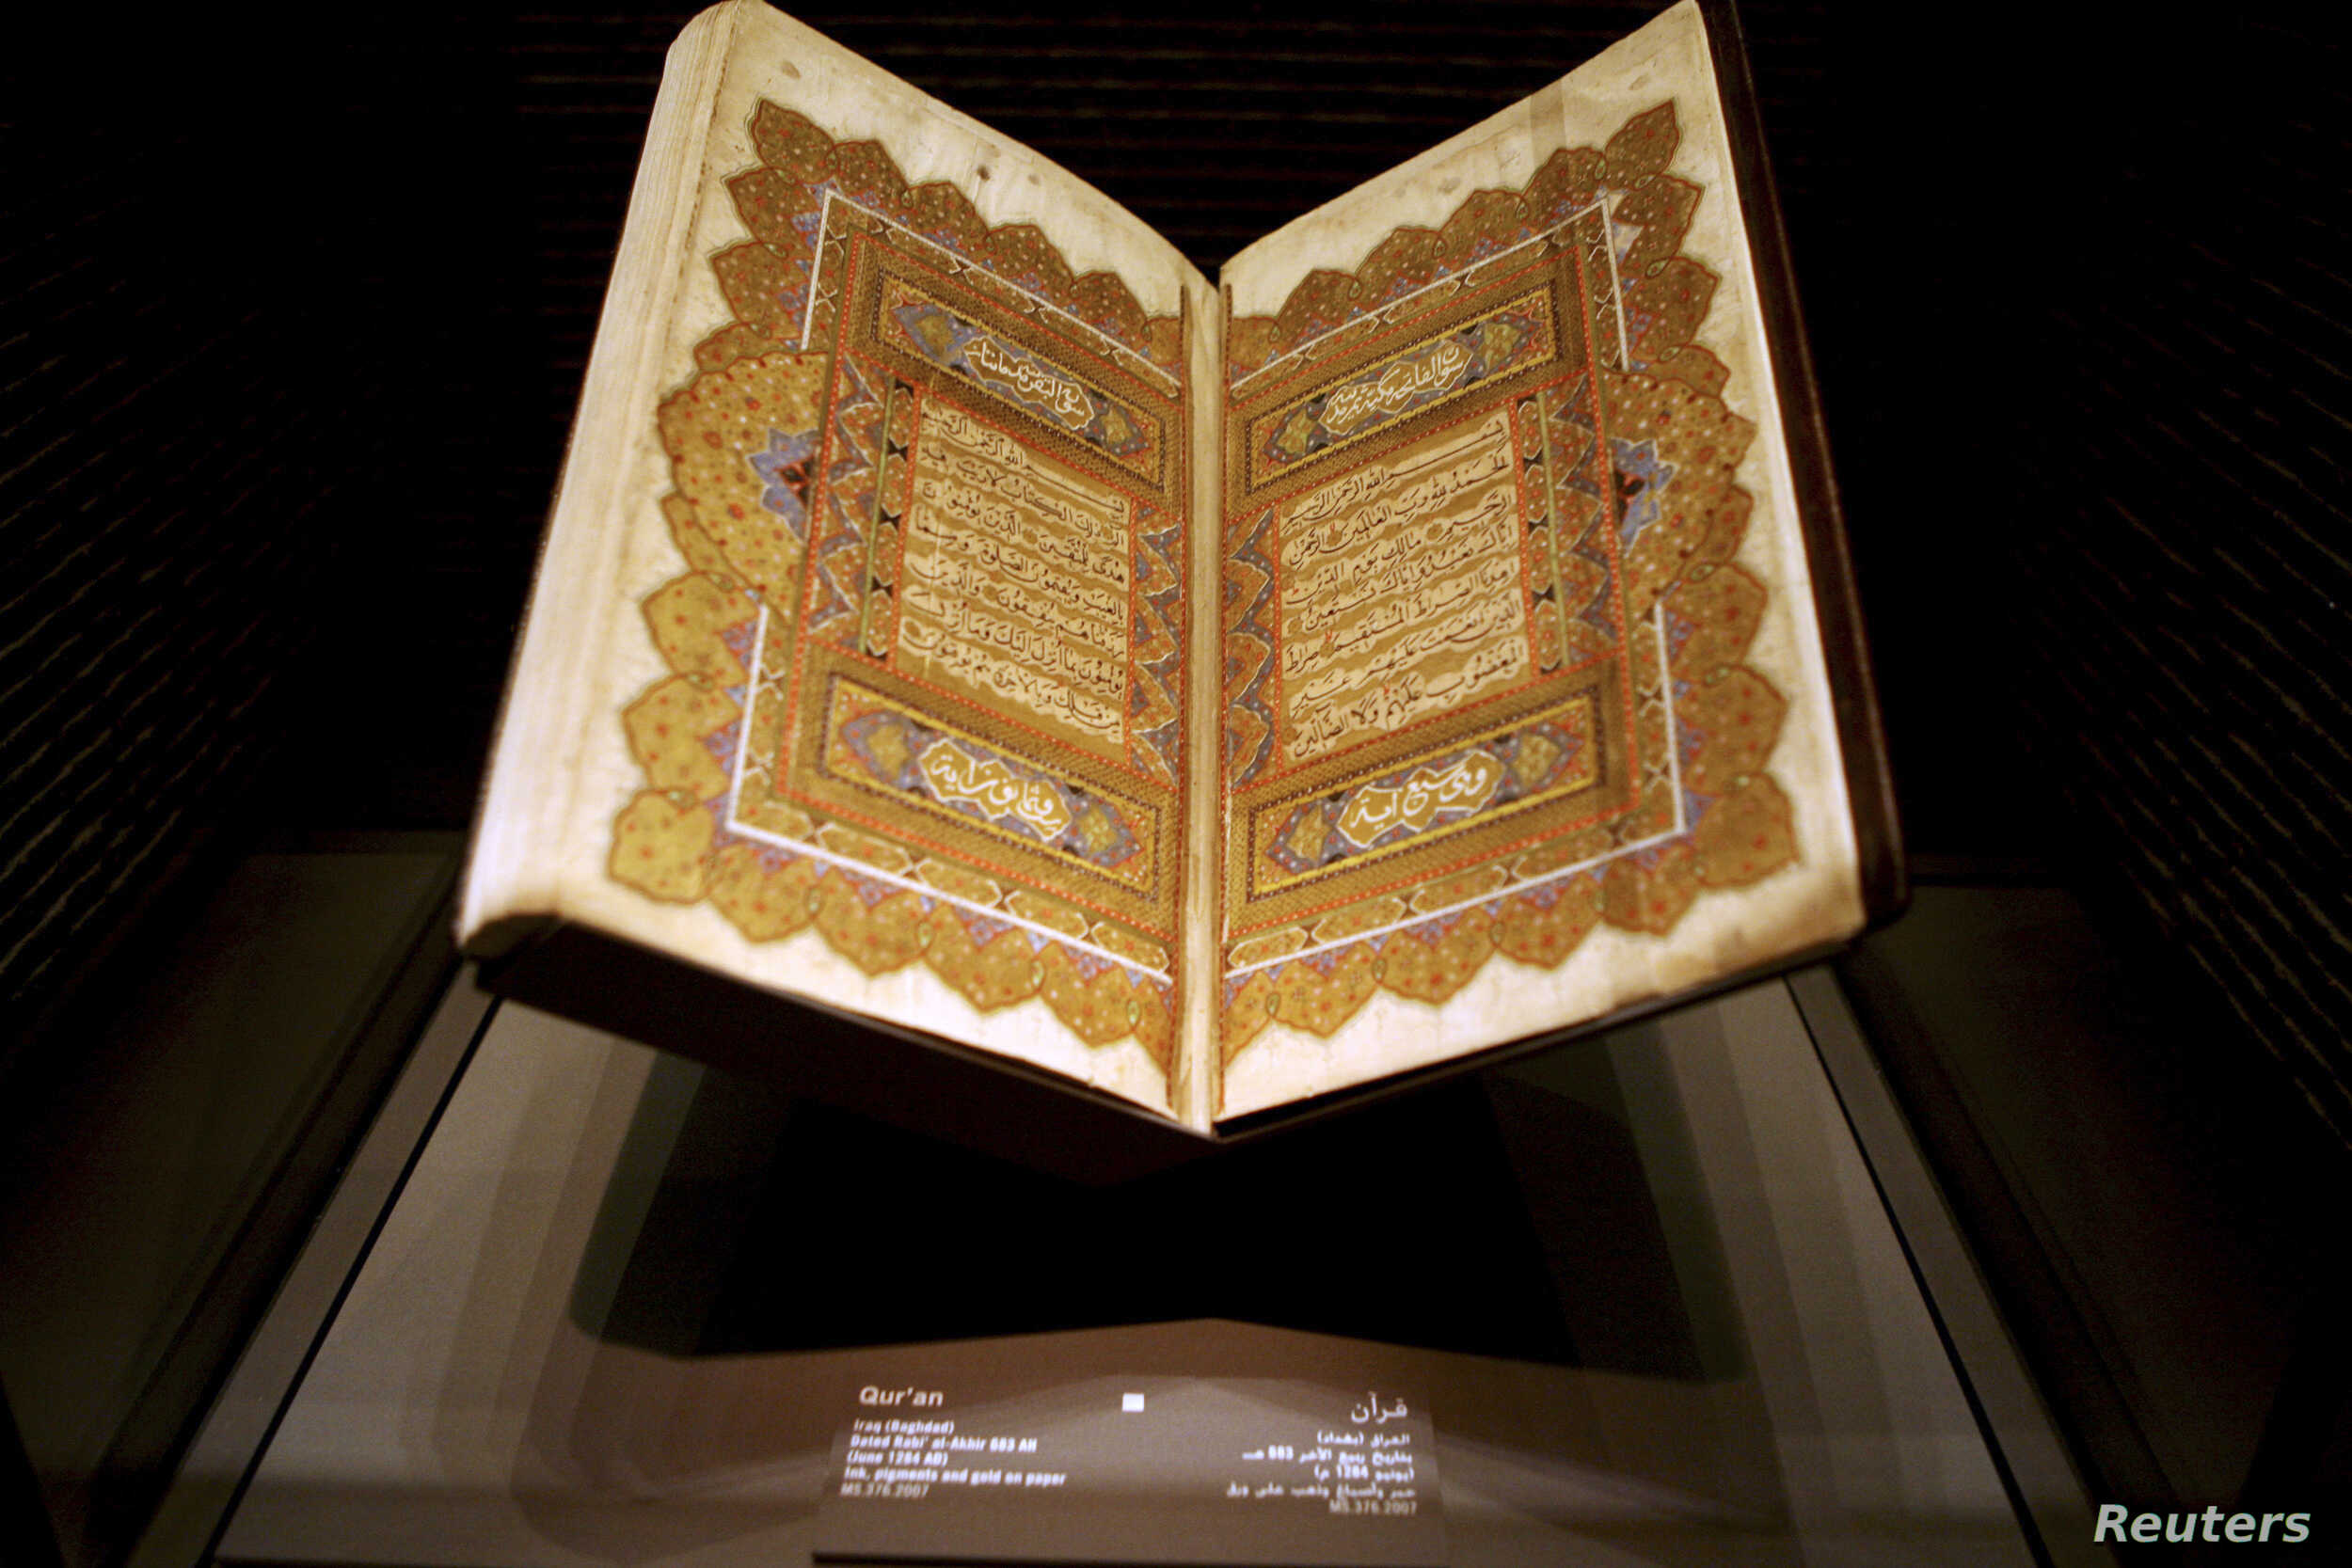 سورة الفاتحة مكية
بسم الله الرحمن الرحيم
الحمد لله رب العالمين الرحمن
الرحيم مالك يوم الدين
اياك نعبد واياك نستعين
اهدنا الصراط المستقيم صراط
الذين انعمت عليهم غير
المغضوب عليهم ولا الضالين
وهى سبع اية
سورة البقرة مائتا
بسم الله الرحمن الرحيم
الم ذلك الكتاب لا ريب فيه
هدى للمتقين الذين يؤمنون
بالغيب ويقيمون الصلوة ومما
رزقناهم ينفقون والذين
يؤمنون بما انزل اليك وما انزل
من قبلك وبالاخرة هم يوقنون
وثمانون اية
Qur'an
Iraq (Baghdad)
Dated Rabi' al-Akhir 683 AH
(June 1284 AD)
Ink, pigments and gold on paper
MS.376.2007
قرآن
العراق (بغداد)
بتاريخ ربيع الآخر 683 هـ
(يونيو 1284 م)
حبر وأصباغ وذهب على ورق
MS.376.2007
Reuters